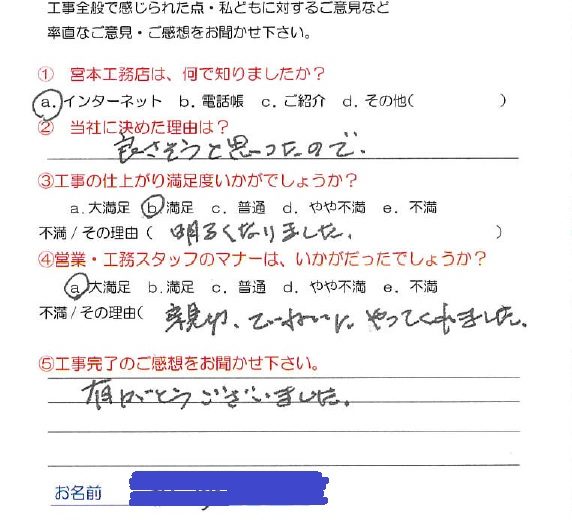 工事全般で感じられた点・私どもに対するご意見など
率直なご意見・ご感想をお聞かせ下さい。
① 宮本工務店は、何で知りましたか？
a. インターネット b. 電話帳 c. ご紹介 d. その他( )
② 当社に決めた理由は？
良さそうと思ったので.
③工事の仕上がり満足度いかがでしょうか？
a. 大満足 b. 満足 c. 普通 d. やや不満 e. 不満
不満 / その理由 ( 明るくなりました. )
④営業・工務スタッフのマナーは、いかがだったでしょうか？
a. 大満足 b. 満足 c. 普通 d. やや不満 e. 不満
不満 / その理由( 親切、ていねいに やってくれました.
⑤工事完了のご感想をお聞かせ下さい。
有りがとうございました.
お名前